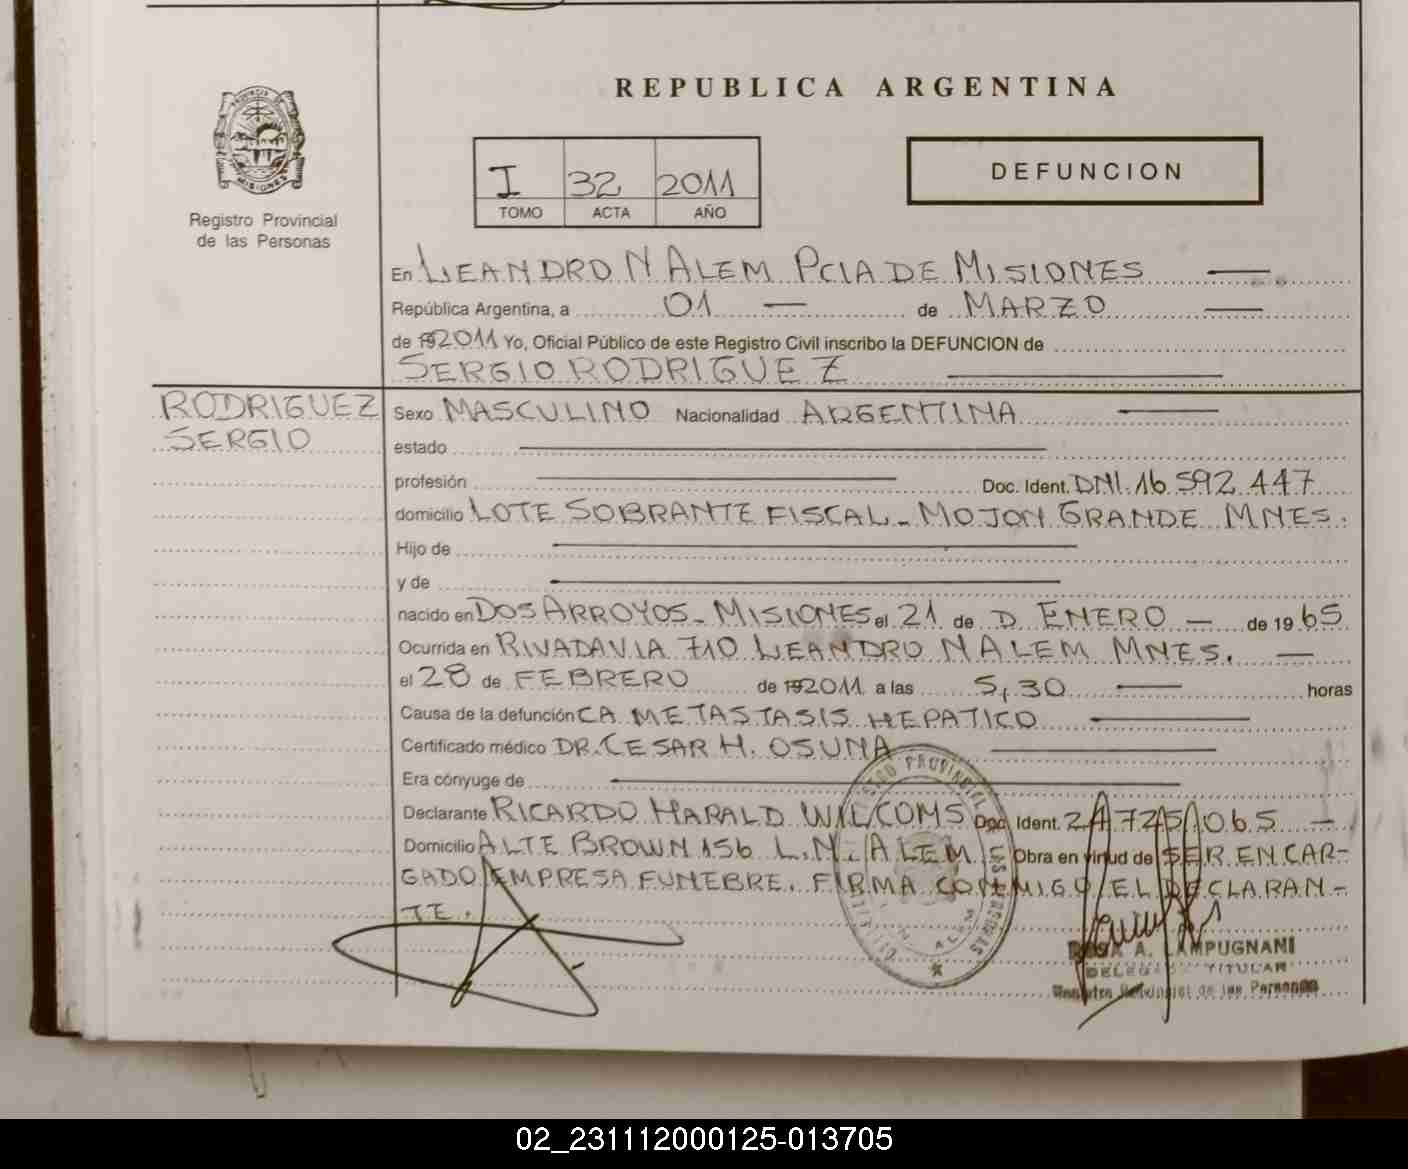 REPUBLICA ARGENTINA
PROVINCIA DE
MISIONES
Registro Provincial
de las Personas
I 32 2011
TOMO ACTA AÑO
DEFUNCION
En LEANDRO N ALEM PCIA DE MISIONES
República Argentina, a 01 de MARZO
de 192011 Yo, Oficial Público de este Registro Civil inscribo la DEFUNCION de
SERGIO RODRIGUEZ
RODRIGUEZ
SERGIO
Sexo MASCULINO Nacionalidad ARGENTINA
estado
profesión Doc. Ident. DNI. 16 592 447
domicilio LOTE SOBRANTE FISCAL - MOJON GRANDE MNES.
Hijo de
y de
nacido en DOS ARROYOS - MISIONES el 21 de D ENERO de 19 65
Ocurrida en RIVADAVIA 710 LEANDRO N ALEM MNES.
el 28 de FEBRERO de 192011 a las 5,30 horas
Causa de la defunción CA METASTASIS HEPATICO
Certificado médico DR. CESAR H. OSUNA
Era cónyuge de
Declarante RICARDO HARALD WILCOMS Doc. Ident. 24 725 065
Domicilio ALTE BROWN 156 L.N. ALEM Obra en virtud de SER ENCAR-
GADO EMPRESA FUNEBRE. FIRMA CONMIGO EL DECLARAN-
TE.
ROSA A. LAMPUGNANI
DELEGADA TITULAR
Registro Provincial de las Personas
02_231112000125-013705